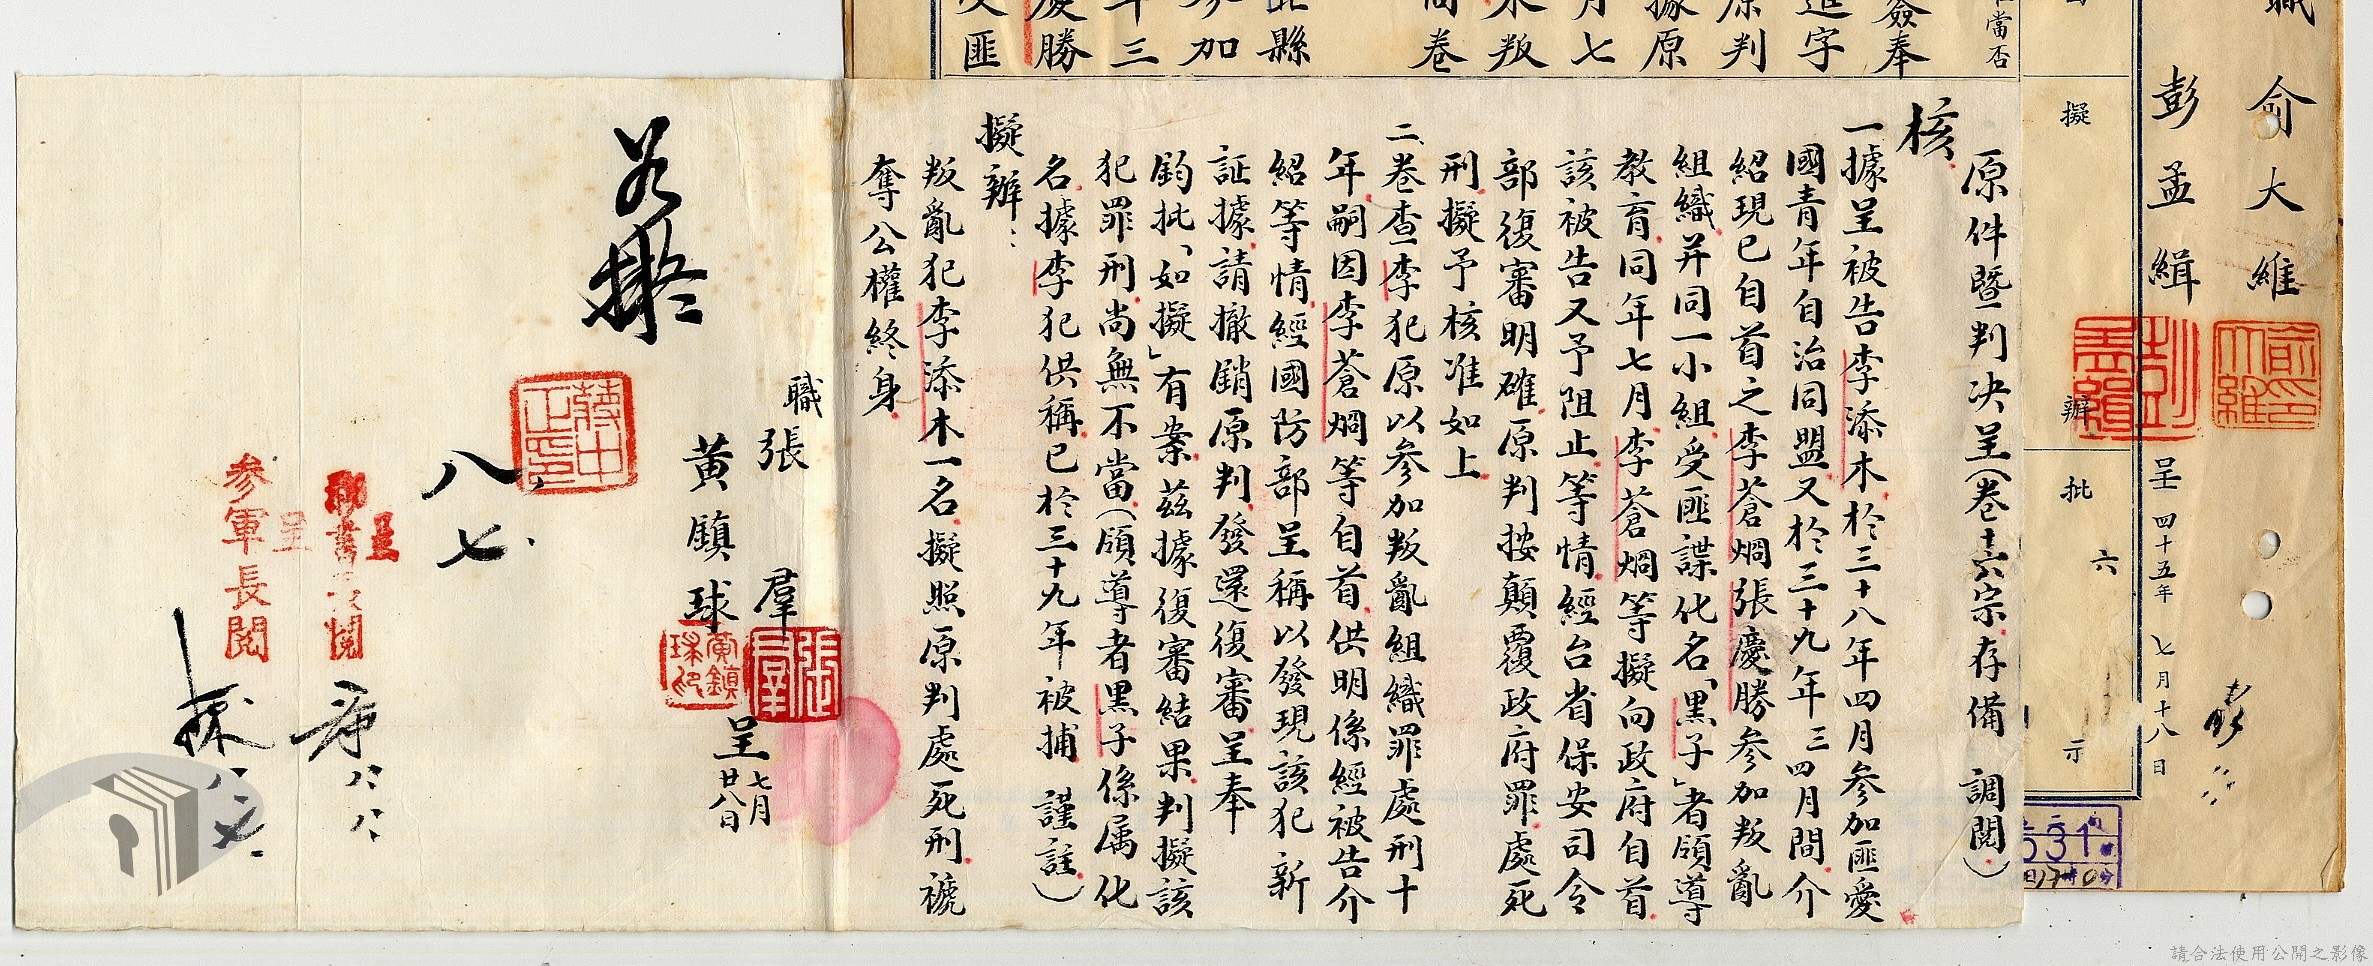 職俞大維
彭孟緝
呈四十五年七月十八日
擬辦
批示
六
當否
簽奉
進字
原判
據原
月七
木叛
商卷
此縣
參加
年三
慶勝
叛匪
原件暨判決呈(卷十六宗存備調閱)
核
一據呈被告李添木於三十八年四月參加匪愛
國青年自治同盟又於三十九年三四月間介
紹現已自首之李蒼烱張慶勝參加叛亂
組織并同一小組受匪諜化名「黑子」者領導
教育同年七月李蒼烱等擬向政府自首
該被告又予阻止等情經台省保安司令
部復審明確原判按顛覆政府罪處死
刑擬予核准如上
二、卷查李犯原以參加叛亂組織罪處刑十
年嗣因李蒼烱等自首供明係經被告介
紹等情經國防部呈稱以發現該犯新
証據請撤銷原判發還復審呈奉
鈞批「如擬」有案茲據復審結果判擬該
犯罪刑尚無不當(領導者黑子係属化
名據李犯供稱已於三十九年被捕謹註)
擬辦:
叛亂犯李添木一名擬照原判處死刑褫
奪公權終身
職張羣
黃鎮球
呈七月廿八日
張羣
黃鎮球印
如擬
蔣中正印
八七
呈
祕書長閱
呈
參軍長閱
八八
俞大維印
彭孟緝
531
請合法使用公開之影像